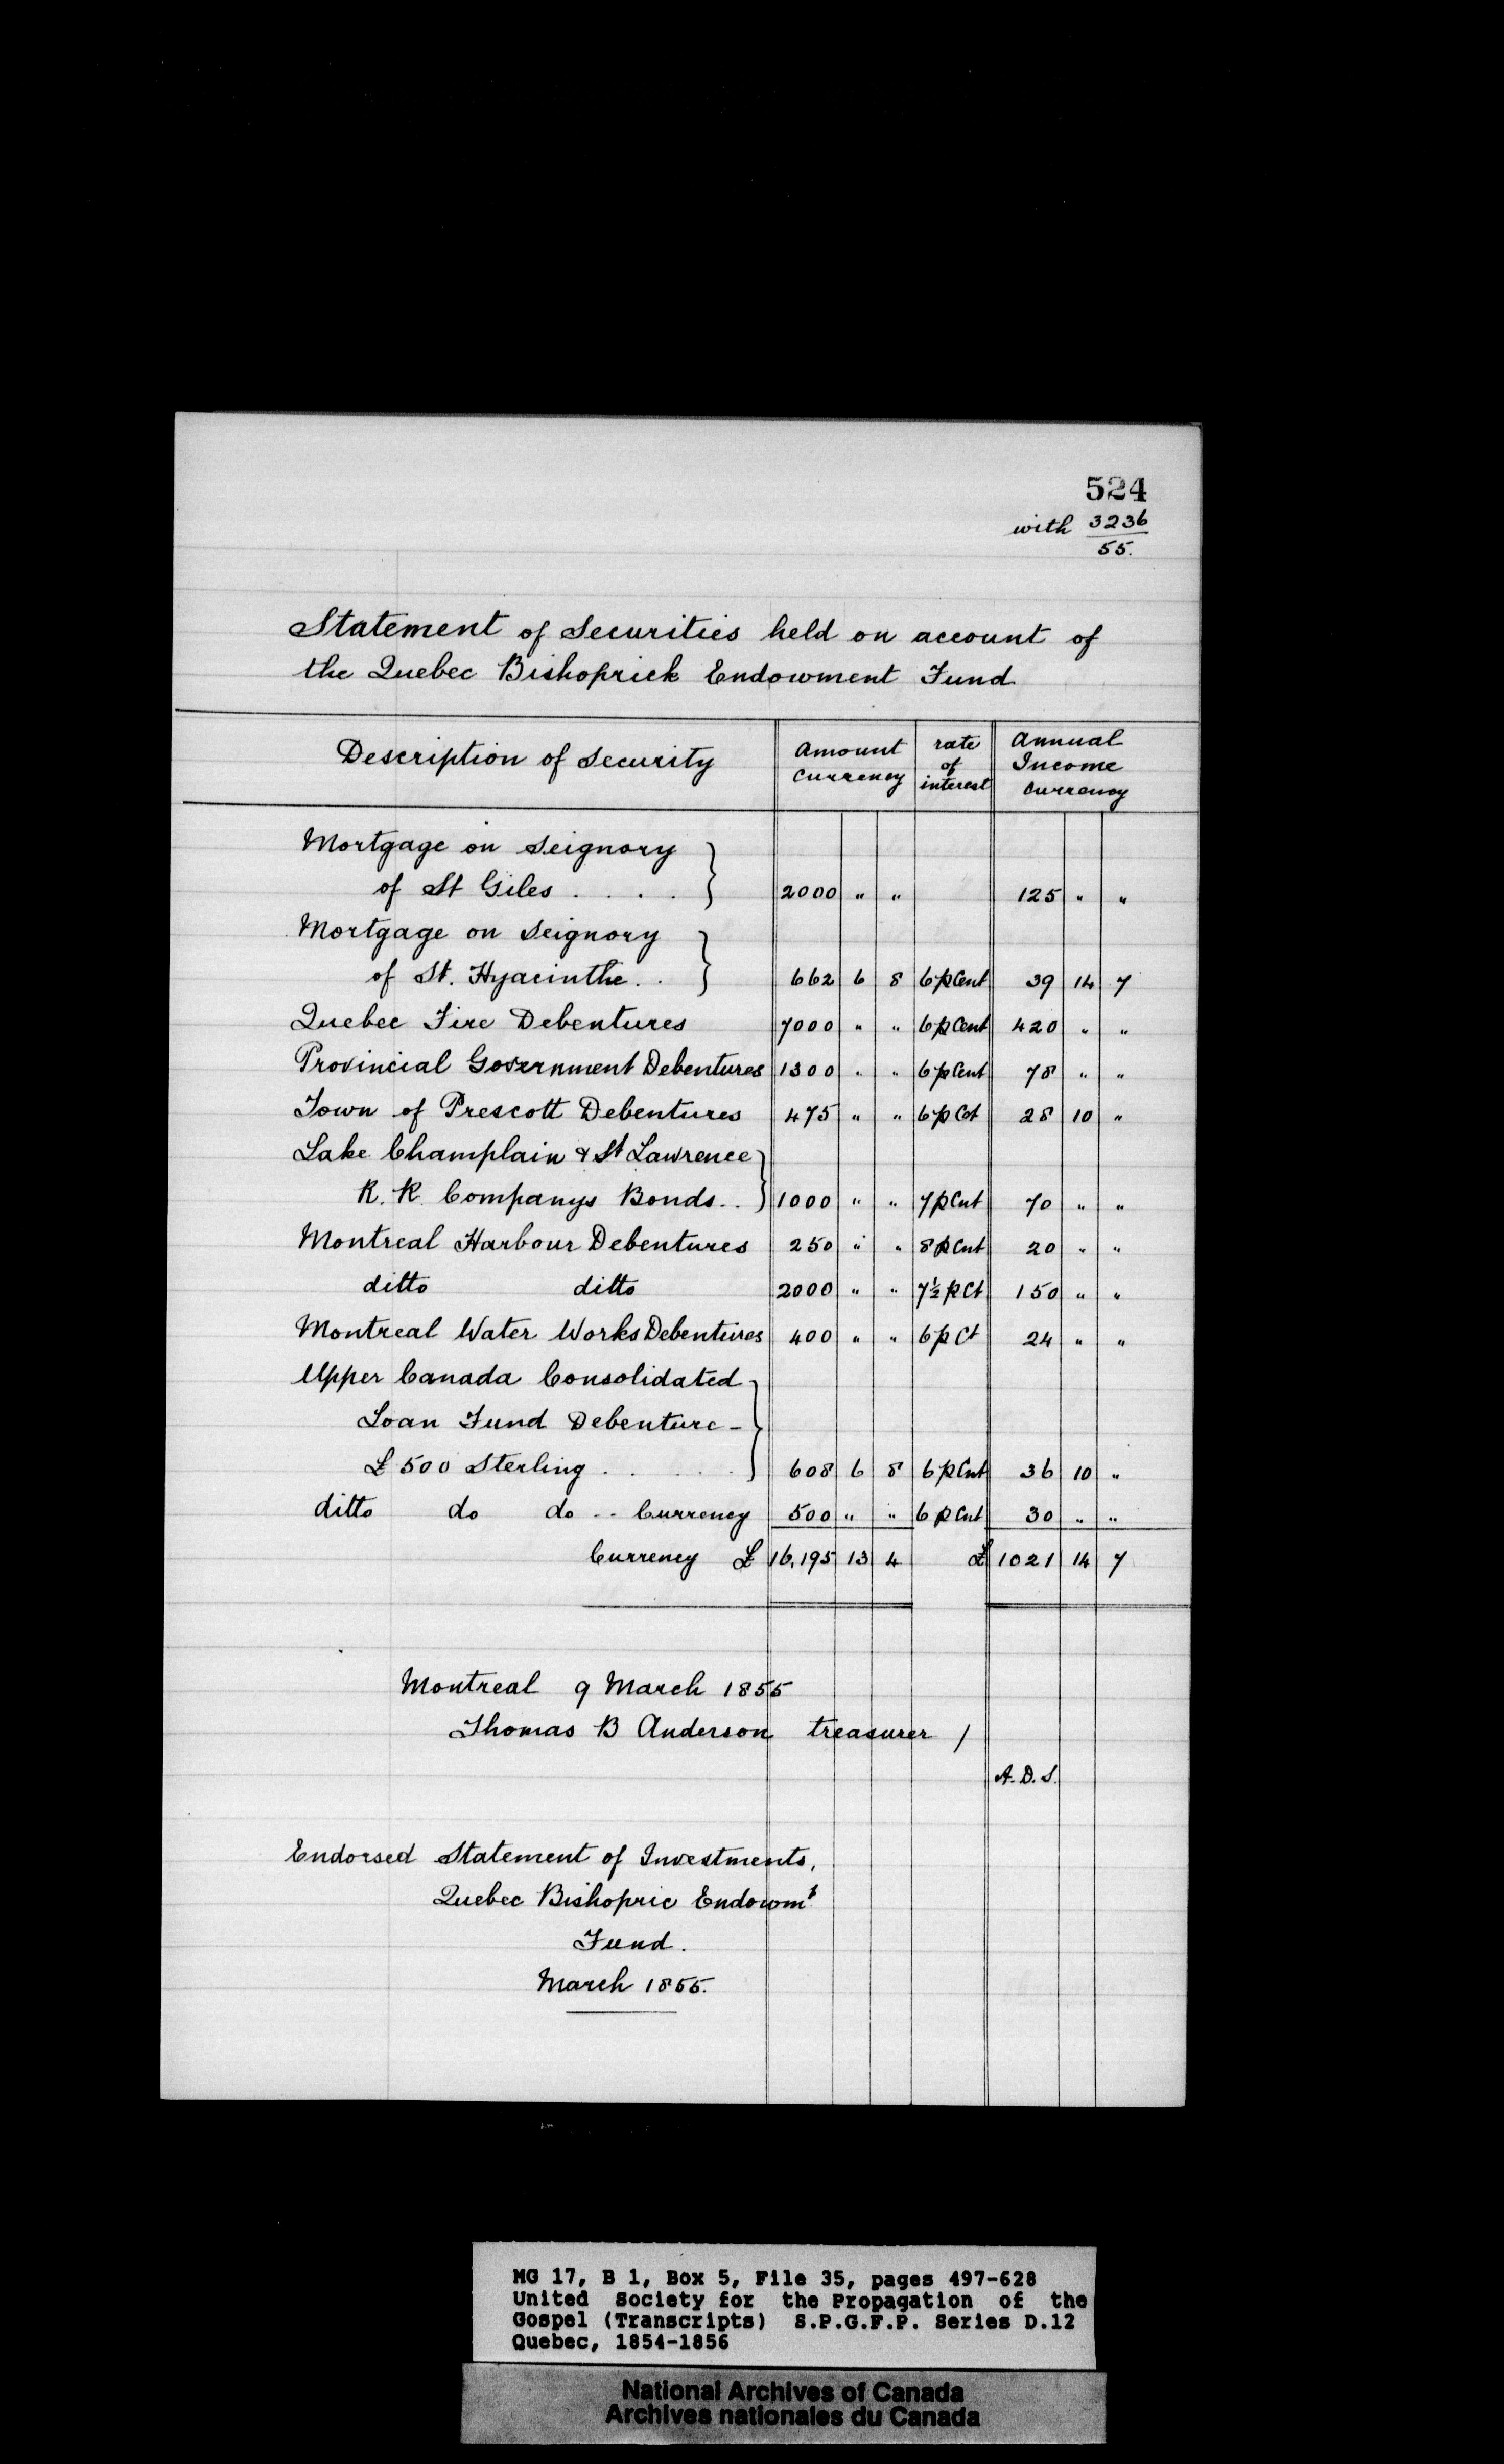 524
with 3236
55.
Statement of Securities held on account of
the Quebec Bishoprick Endowment Fund
Description of Security
Amount currency
rate of interest
Annual Income currency
Mortgage on Seignory
of St Giles . . . . } 2000 " " 125 " "
Mortgage on Seignory
of St. Hyacinthe . . } 662 6 8 6 p Cent 39 14 7
Quebec Fire Debentures 7000 " " 6 p Cent 420 " "
Provincial Government Debentures 1300 " " 6 p Cent 78 " "
Town of Prescott Debentures 475 " " 6 p Cet 28 10 "
Lake Champlain & St Lawrence
R. R. Companys Bonds . . } 1000 " " 7 p Cnt 70 " "
Montreal Harbour Debentures 250 " " 8 p Cnt 20 " "
ditto ditto 2000 " " 7½ p Ct 150 " "
Montreal Water Works Debentures 400 " " 6 p Ct 24 " "
Upper Canada Consolidated
Loan Fund Debenture –
£ 500 Sterling . . . . . } 608 6 8 6 p Cnt 36 10 "
ditto do do -- Currency 500 " " 6 p Cnt 30 " "
Currency £ 16,195 13 4 £ 1021 14 7
Montreal 9 March 1855
Thomas B Anderson treasurer /
A. D. S.
Endorsed Statement of Investments,
Quebec Bishopric Endowmt
Fund.
March 1855.
MG 17, B 1, Box 5, File 35, pages 497-628
United Society for the Propagation of the
Gospel (Transcripts) S.P.G.F.P. Series D.12
Quebec, 1854-1856
National Archives of Canada
Archives nationales du Canada